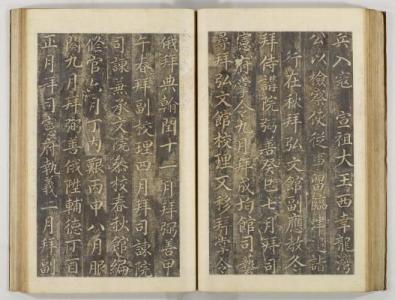 兵入寇 宣祖大王西幸龍灣
公以檢察使從事留臨津 詣
行在秋拜弘文館副應教冬
拜侍講院弼善癸巳七月拜司
憲府掌令九月拜成均館司藝
尋拜弘文館校理又移拜掌令
俄拜典翰閏十一月拜弼善甲
午春拜副校理四月拜司諫院
司諫兼承文院參校春秋館編
修官六月丁內艱丙申八月服
闋九月拜弼善俄陞輔德丁酉
正月拜司憲府執義二月拜副